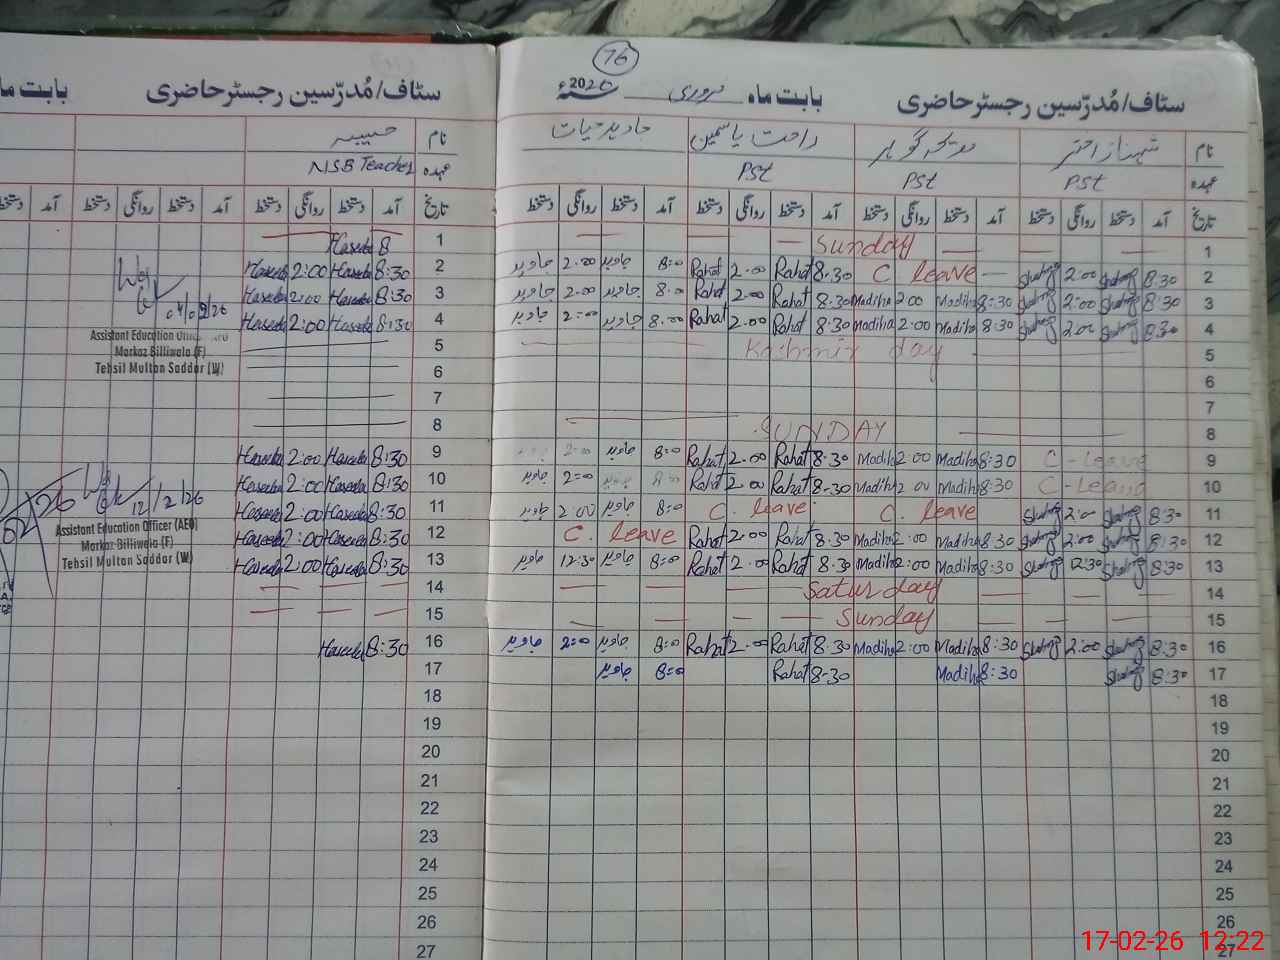 76
سٹاف/مُدرّسین رجسٹر حاضری بابت ماہ فروری 2026
نام شہناز اختر مدیحہ گوہر راحت یاسمین جاوید حیات
عہدہ PST PST PST
تاریخ آمد دستخط روانگی دستخط آمد دستخط روانگی دستخط آمد دستخط روانگی دستخط آمد دستخط روانگی دستخط
1 — Sunday —
2 8:30 Shahnaz 2:00 Shahnaz C. leave 8.30 Rahat 2.00 Rahat 8:00 جاوید 2.00 جاوید
3 8:30 Shahnaz 2:00 Shahnaz 8:30 Madiha 2:00 Madiha 8.30 Rahat 2.00 Rahat 8.00 جاوید 2.00 جاوید
4 8:30 Shahnaz 2:00 Shahnaz 8:30 Madiha 2:00 Madiha 8.30 Rahat 2.00 Rahat 8.00 جاوید 2:00 جاوید
5 Kashmir day
6
7
8 SUNDAY
9 C-Leave 8:30 Madiha 2:00 Madiha 8.30 Rahat 2.00 Rahat 8:0 جاوید 2:00
10 C-Leave 8:30 Madiha 2:00 Madiha 8.30 Rahat 2.00 Rahat 8:0 جاوید 2:00 جاوید
11 8:30 Shahnaz 2:0 Shahnaz C. leave C. leave 8:0 جاوید 2:00 جاوید
12 8:30 Shahnaz 2:00 Shahnaz 8:30 Madiha 2:00 Madiha 8.30 Rahat 2.00 Rahat C. leave
13 8:30 Shahnaz 12:30 Shahnaz 8:30 Madiha 2:00 Madiha 8.30 Rahat 2.00 Rahat 8:00 جاوید 12:30 جاوید
14 — Saturday —
15 — Sunday —
16 8:30 Shahnaz 2:00 Shahnaz 8:30 Madiha 2:00 Madiha 8.30 Rahat 2.00 Rahat 8:0 جاوید 2:00 جاوید
17 8:30 Shahnaz 8:30 Madiha 8-30 Rahat 8:0 جاوید
18
19
20
21
22
23
24
25
26
27
سٹاف/مُدرّسین رجسٹر حاضری بابت ما
نام حسیبہ
عہدہ NSB Teacher
تاریخ آمد دستخط روانگی دستخط آمد دستخط روانگی دستخط آمد
1 8 Haseeba
2 8:30 Haseeba 2:00 Haseeba
3 8:30 Haseeba 2:00 Haseeba
4 8:30 Haseeba 2:00 Haseeba
5
6
7
8
9 8:30 Haseeba 2:00 Haseeba
10 8:30 Haseeba 2:00 Haseeba
11 8:30 Haseeba 2:00 Haseeba
12 8:30 Haseeba 2:00 Haseeba
13 8:30 Haseeba 2:00 Haseeba
14
15
16 8:30 Haseeba
17
18
19
20
21
22
23
24
25
26
27
Assistant Education Officer
Markaz Billiwala (F)
Tehsil Multan Saddar (W)
12/2/26
Assistant Education Officer (AEO)
Markaz Billiwala (F)
Tehsil Multan Saddar (W)
17-02-26 12:22